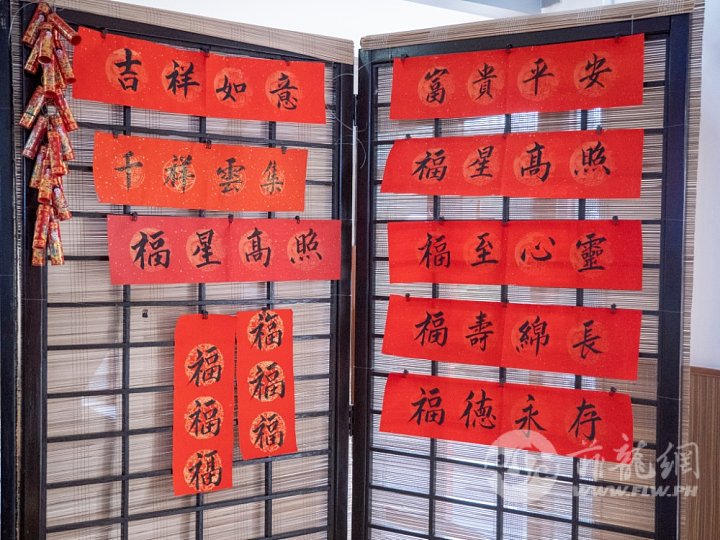 吉祥如意
千祥雲集
福星高照
福福福
福福福
富貴平安
福星高照
福至心靈
福壽綿長
福德永存
菲龍網
WWW.FLW.PH